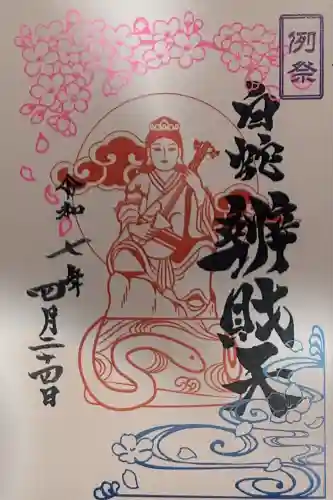 例祭
白蛇辨財天
令和七年
四月二十四日